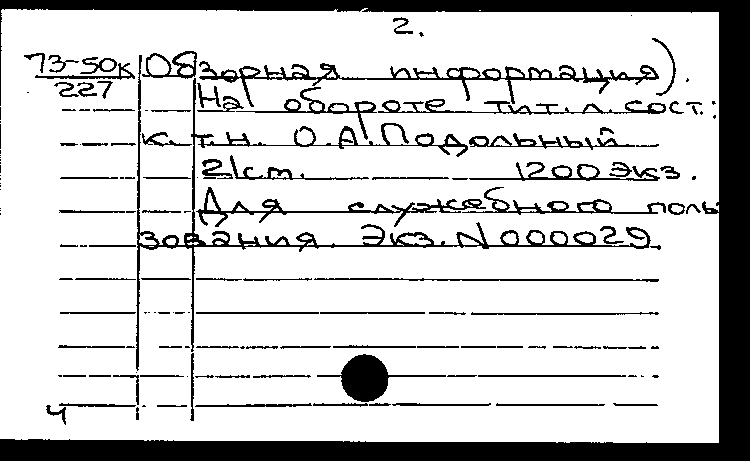 2.
73-50к Обзорная информация).
227 На обороте тит. л. сост.:
к.т.н. О.А.Подольный
21 см. 1200 экз.
Для служебного поль
зования. Экз. N 000029.
ч